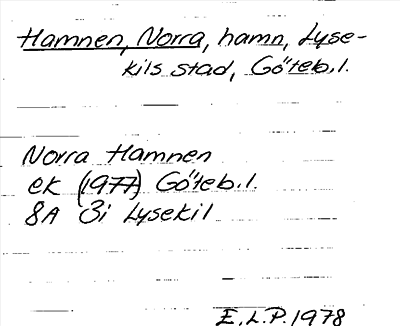 Hamnen, Norra, hamn, Lyse-
kils stad, Göteb.l.
Norra Hamnen
ek (1977) Göteb.l.
8A 3i Lysekil
E.L.P. 1978